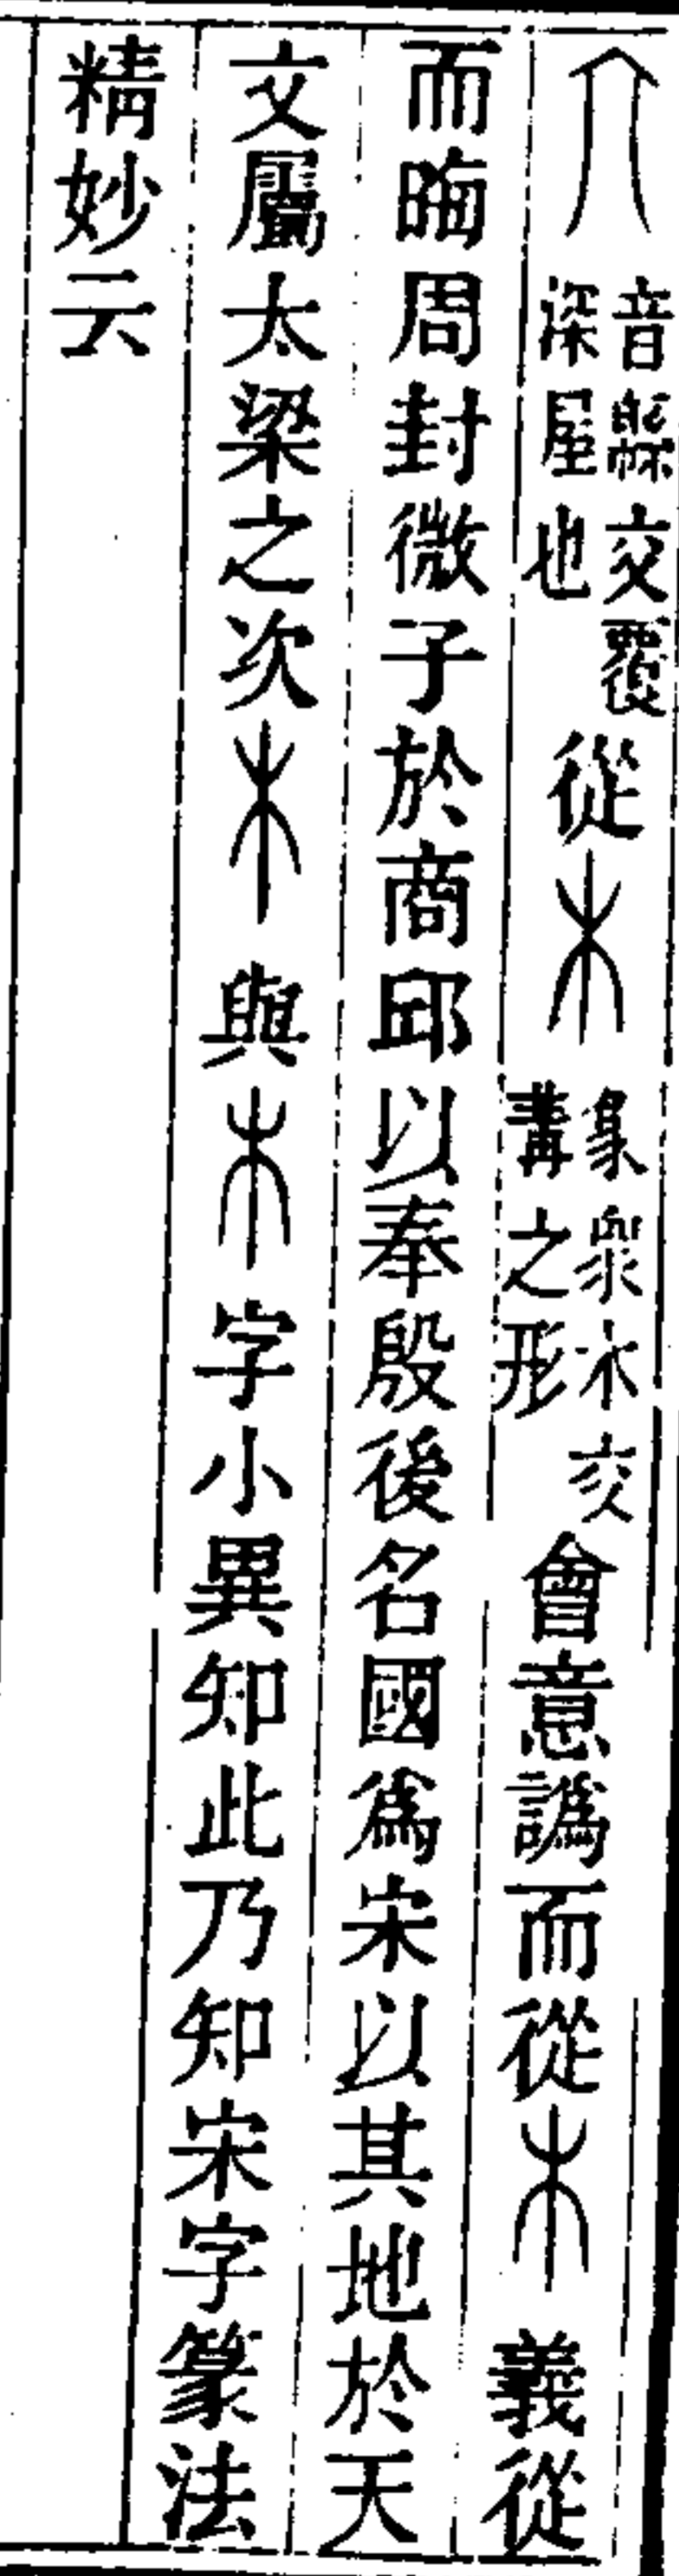 宀音緜交覆深屋也從木象眾木交冓之形會意譌而從木義從
而晦周封微子於商邱以奉殷後名國爲宋以其地於天
文屬太梁之次木與木字小異知此乃知宋字篆法
精妙云